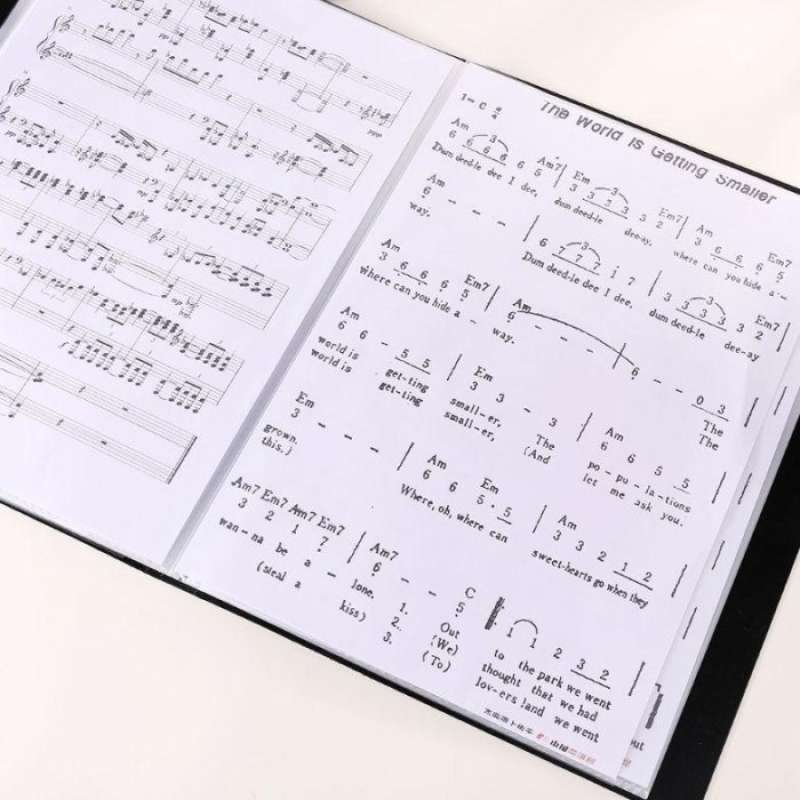 The World Is Getting Smaller
1=C 4/4
Am Am7 Em Em7 Am Em7
6 6 6 6 6 5 3 3 3 3 3 2 3 6 6 6 5
Dum deed-le dee I dee, dum deed-le dee-ay, where can you hide a-
Am
6 - - - 6 7 7 7 1 7 3 3 3 3 3 2
way. Dum deed-le dee I dee, dum deed-le dee-ay
Am Em7 Am
3 6 6 6 5 6 - - - 6 - - 0 3
where can you hide a - way. The
The
Am Em Am
6 6 - 5 5 3 3 - 3 6 6 5 5
world is get-ting small-er, The po-pu-la-tions
world is get-ting small-er, (And let me ask you.
Em Am Em Am
3 - - - 6 6 5 · 5 3 3 2 1 2
grown. Where, oh, where can sweet-hearts go when they
this.)
Am7 Em7 Am7 Em7 Am7 C
3 2 1 7 6 - - 5 1 1 2 3 2
wan-na be a - lone. 1. Out to the park we went
(steal a kiss) 2. (We) thought that we had
3. (To) lov-ers land we went
out